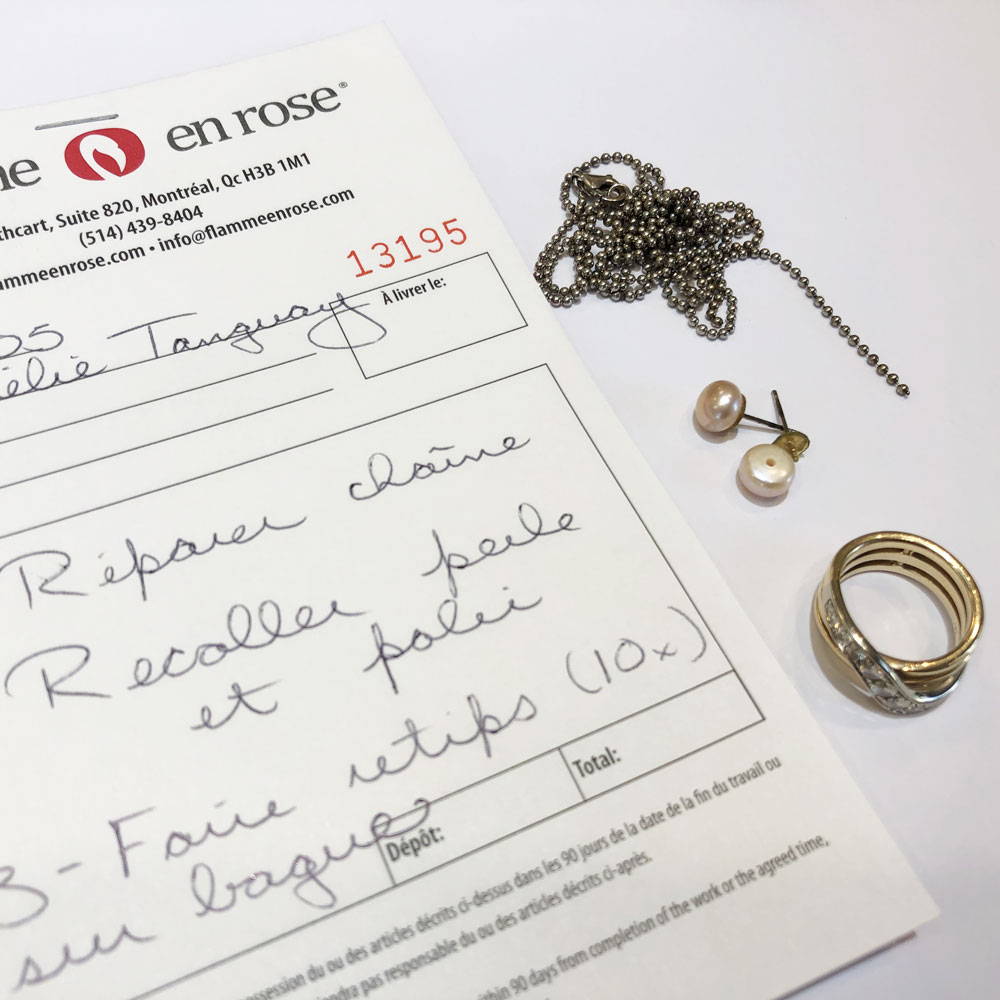 ne en rose®
thcart, Suite 820, Montréal, Qc H3B 1M1
(514) 439-8404
ammeenrose.com • info@flammeenrose.com
13195
À livrer le:
05
élie Tanguay
Réparer chaîne
Recoller perle
et polir
3 - Faire retips (10x)
sur bague
Dépôt:
Total:
ossession du ou des articles décrits ci-dessus dans les 90 jours de la date de la fin du travail ou
endra pas responsable du ou des articles décrits ci-après.
within 90 days from completion of the work or the agreed time,